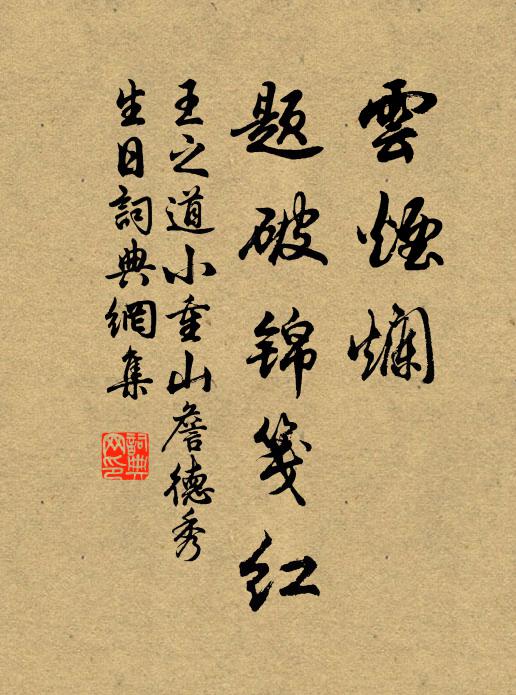 雲煙爛
題破錦箋紅
王之道小重山詹德秀
生日詞典網集
詞典
网印